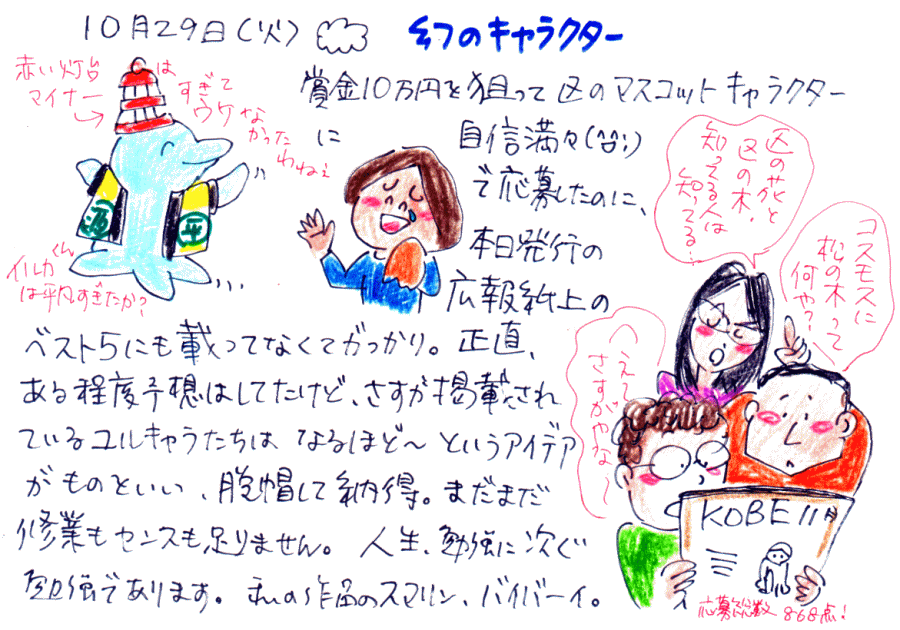 10月29日(火)
幻のキャラクター
赤い灯台は
マイナー
すぎて
ウケな
かった
わねぇ
賞金10万円を狙って区のマスコットキャラクター
に
自信満々(笑)
で応募したのに、
本日発行の
広報紙上の
イルカくん
は平凡すぎたか?
源
平
ベスト5にも載ってなくてガッカリ。正直、
ある程度予想はしてたけど、さすが掲載され
ているユルキャラたちは なるほど〜 というアイデア
がものといい、脱帽して納得。まだまだ
修業もセンスも足りません。 人生、勉強に次ぐ
勉強であります。私の作品のスマリン、バイバーイ。
区の花と
区の木、
知ってる人は
知ってる…
コスモスに
松の木って
何や?
へぇ〜
さすがやな〜
KOBE 11月
応募総数 868点!